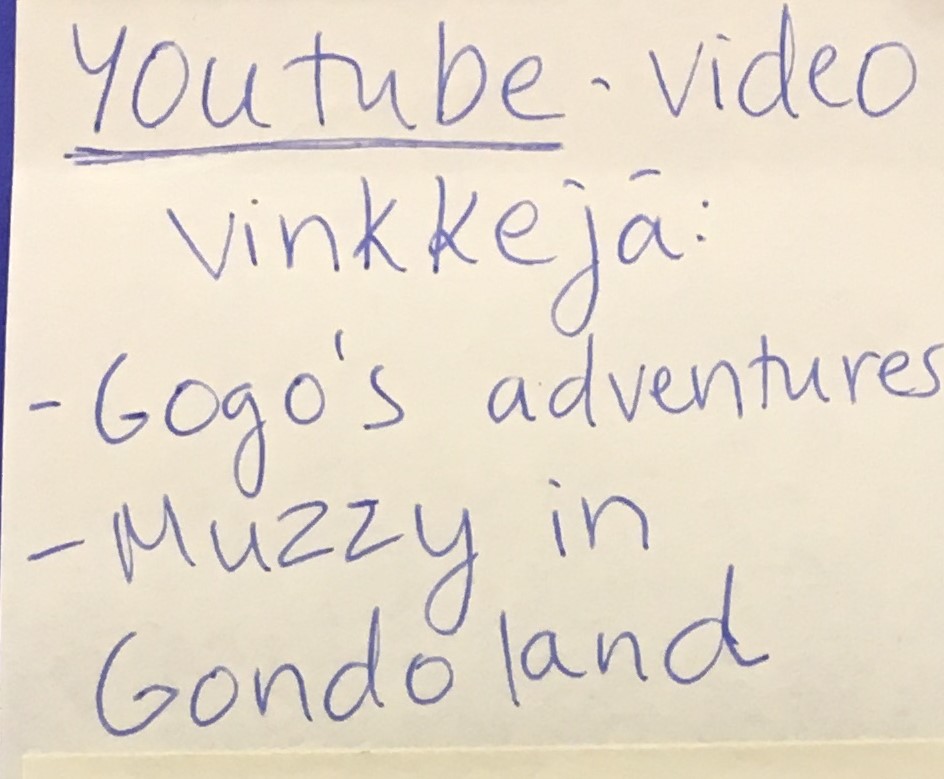 Youtube-video
vinkkejä:
- Gogo's adventures
- Muzzy in
Gondoland